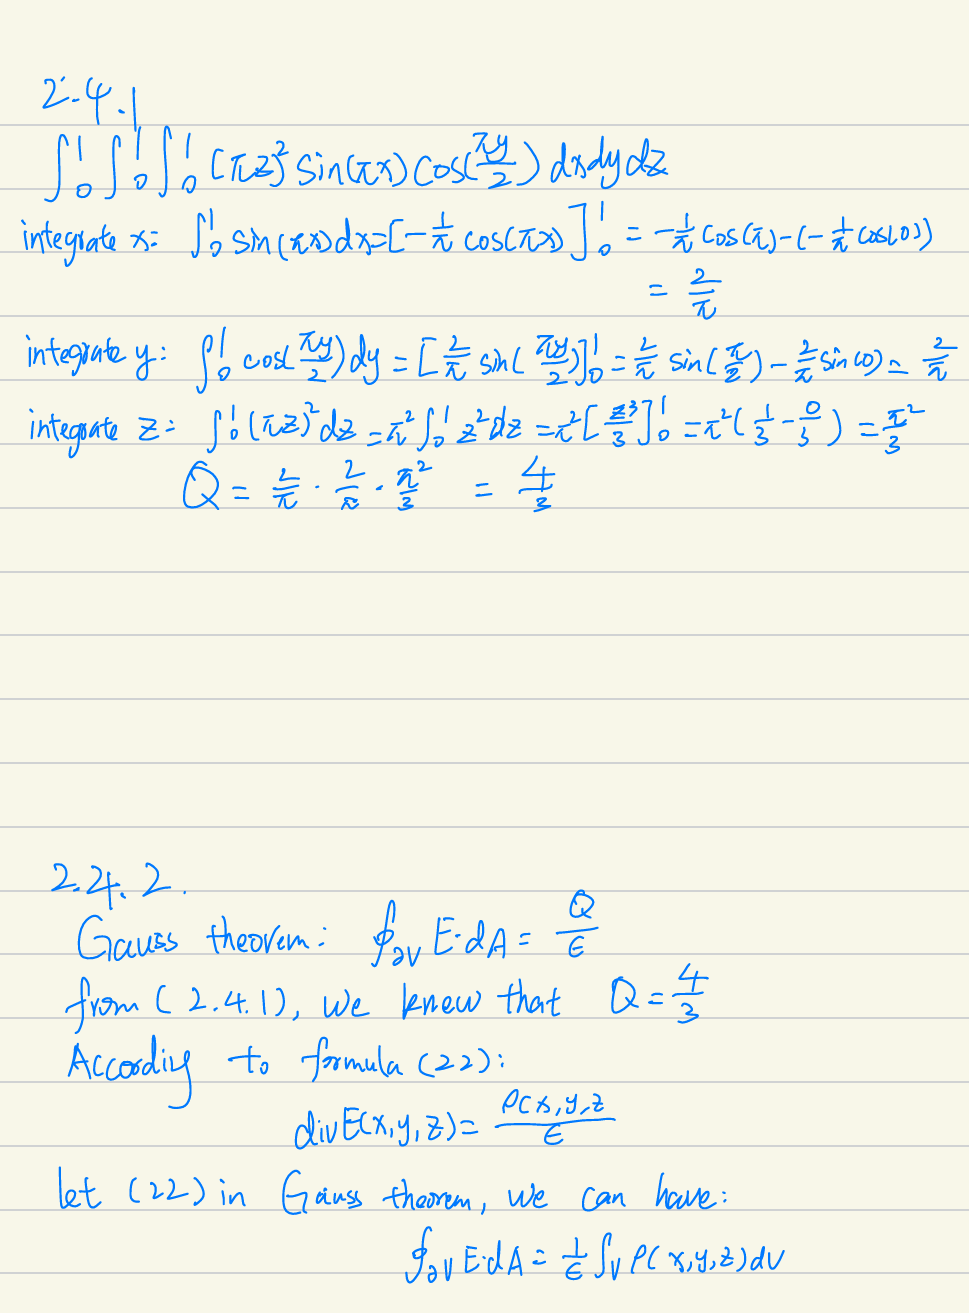 2.4.1
∫₀¹ ∫₀¹ ∫₀¹ (πz)² sin(πx) cos(πy/2) dxdydz
integrate x: ∫₀¹ sin(πx)dx=[-1/π cos(πx)]₀¹ = -1/π cos(π)-(-1/π cos(0))
= 2/π
integrate y: ∫₀¹ cos(πy/2)dy = [2/π sin(πy/2)]₀¹ = 2/π sin(π/2) - 2/π sin(0) = 2/π
integrate z: ∫₀¹ (πz)² dz = π² ∫₀¹ z² dz = π² [z³/3]₀¹ = π² (1/3 - 0/3) = π²/3
Q = 2/π · 2/π · π²/3 = 4/3
2.4.2.
Gauss theorem: ∮∂V E·dA = Q/ϵ
from (2.4.1), we knew that Q = 4/3
According to formula (22):
div E(x,y,z) = ρ(x,y,z/ϵ
let (22) in Gauss theorem, we can have:
∮∂V E·dA = 1/ϵ ∫V ρ(x,y,z)dV